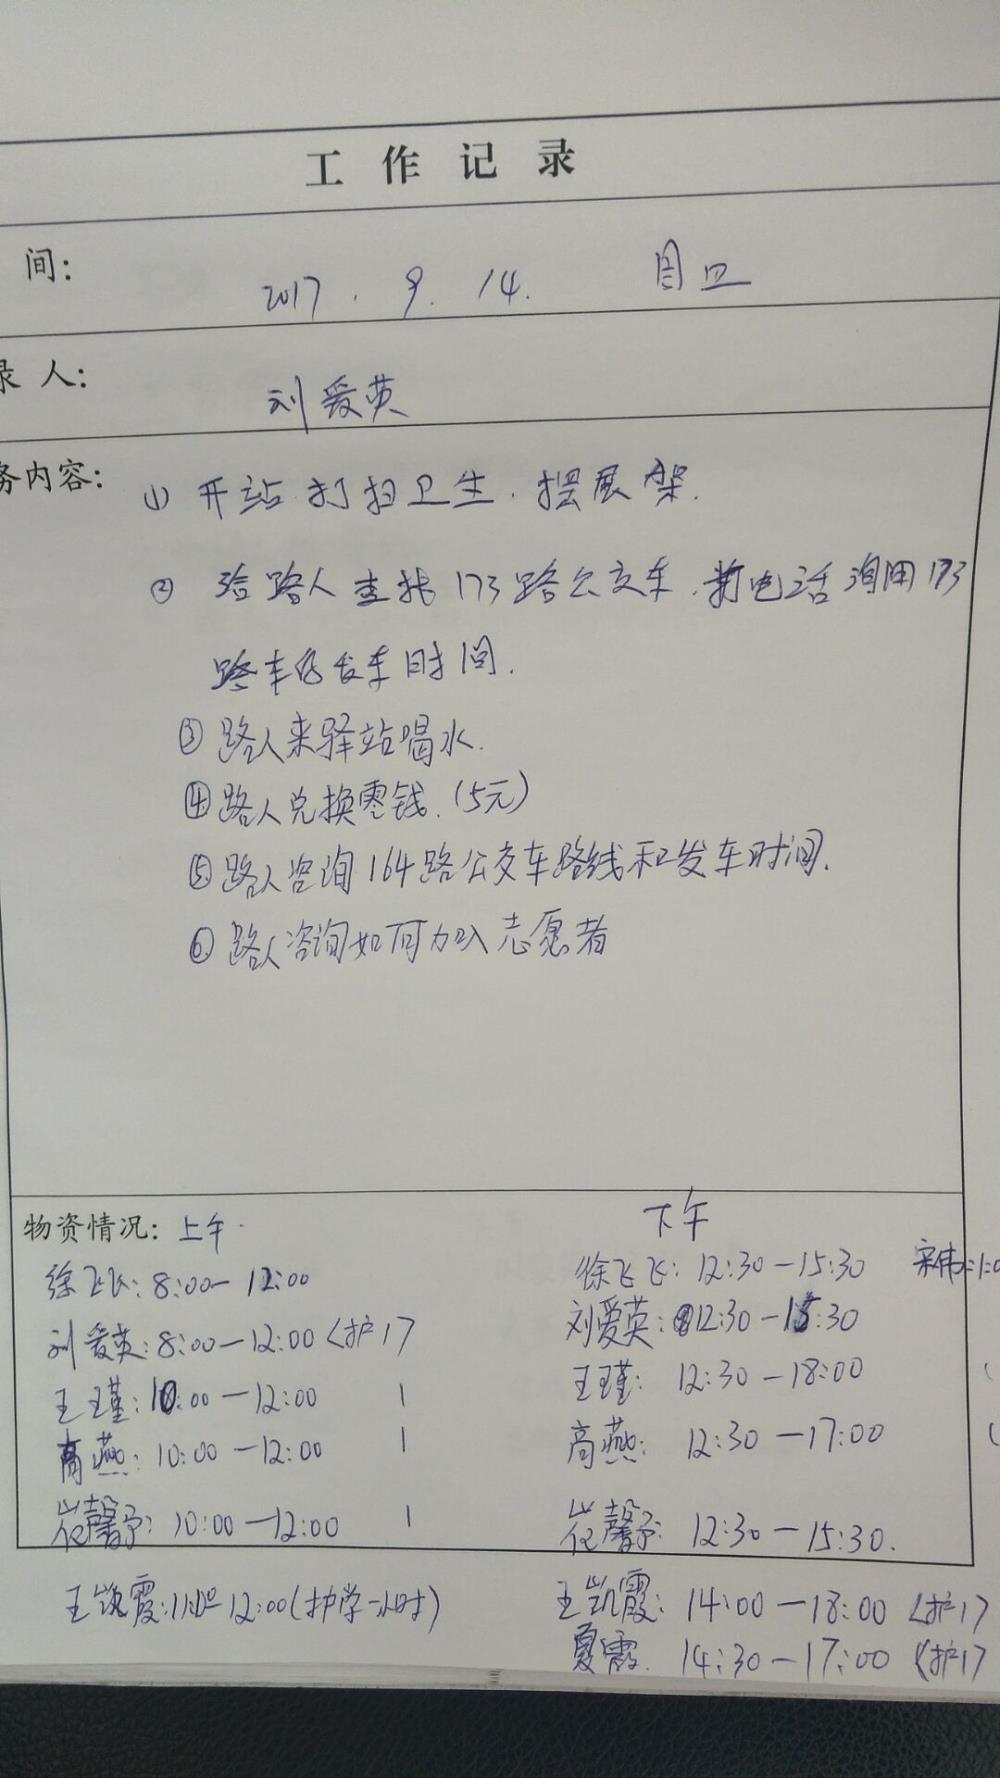 工作记录
间：
2017.9.14. 周四
录人：
刘爱英
务内容：
① 开站打扫卫生.摆展架.
② 给路人查找173路公交车.打电话询问173
路车的发车时间.
③ 路人来驿站喝水.
④ 路人兑换零钱.(5元)
⑤ 路人咨询164路公交车路线和发车时间.
⑥ 路人咨询如何加入志愿者
物资情况：上午 下午
徐飞飞：8:00—12:00 徐飞飞：12:30—15:30
刘爱英：8:00—12:00 <护1> 刘爱英：12:30—15:30
王瑾：10:00—12:00 1 王瑾：12:30—18:00
高燕：10:00—12:00 1 高燕：12:30—17:00
崔馨予：10:00—12:00 1 崔馨予：12:30—15:30.
王凯霞：12:00(护学一小时) 王凯霞：14:00—18:00 <护1>
夏霞 14:30—17:00 <护1>